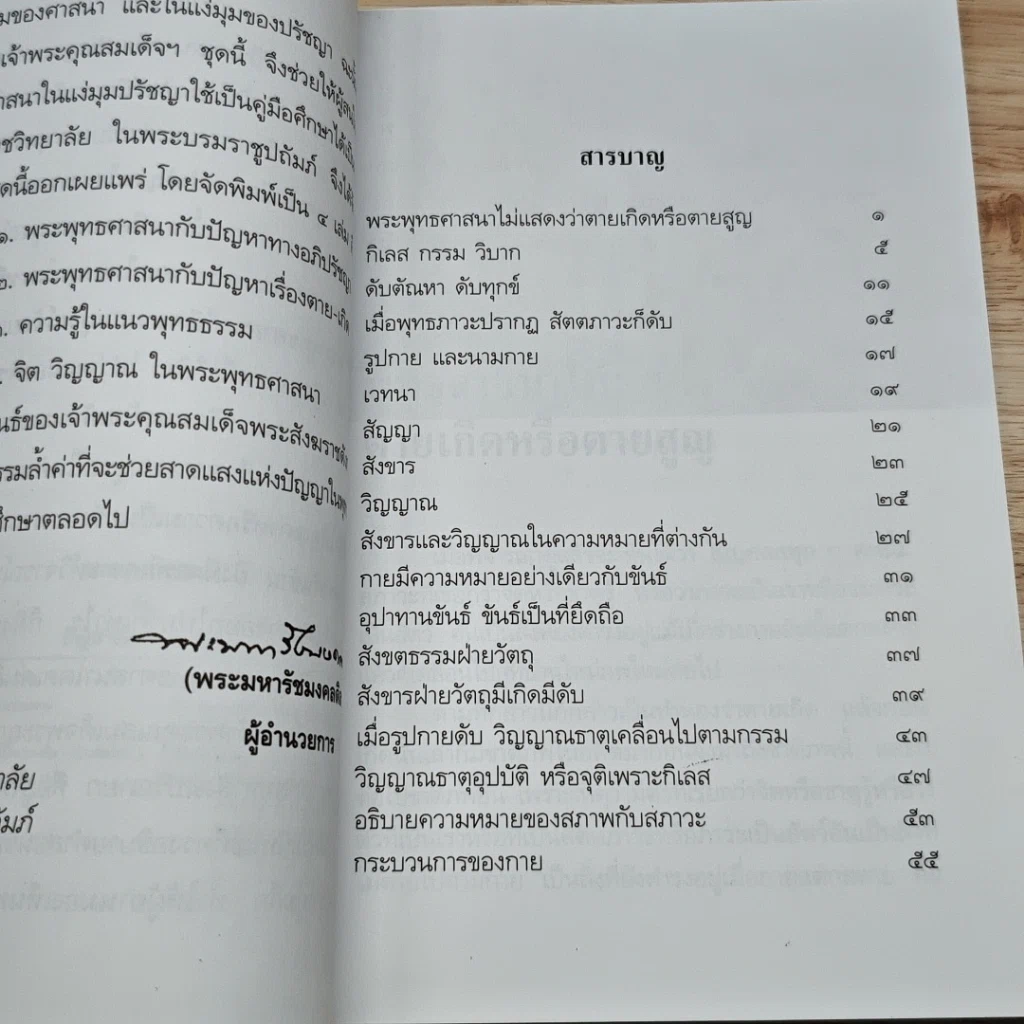 มของศาสนา และในแง่มุมของปรัชญา
เจ้าพระคุณสมเด็จฯ ชุดนี้ จึงช่วยให้ผู้สน
าสนาในแง่มุมปรัชญาใช้เป็นคู่มือศึกษาได้เป็น
ชวิทยาลัย ในพระบรมราชูปถัมภ์ จึงได้
ดนี้ออกเผยแพร่ โดยจัดพิมพ์เป็น ๔ เล่ม
๑. พระพุทธศาสนากับปัญหาทางอภิปรัชญา
๒. พระพุทธศาสนากับปัญหาเรื่องตาย-เกิด
. ความรู้ในแนวพุทธธรรม
. จิต วิญญาณ ในพระพุทธศาสนา
นธ์ของเจ้าพระคุณสมเด็จพระสังฆราช
รรมล้ำค่าที่จะช่วยสาดแสงแห่งปัญญาใน
ศึกษาตลอดไป
(พระมหารัชมงคลดิ
ผู้อำนวยการ
าลัย
ัมภ์
สารบาญ
พระพุทธศาสนาไม่แสดงว่าตายเกิดหรือตายสูญ ๑
กิเลส กรรม วิบาก ๕
ดับตัณหา ดับทุกข์ ๑๑
เมื่อพุทธภาวะปรากฏ สัตตภาวะก็ดับ ๑๕
รูปกาย และนามกาย ๑๗
เวทนา ๑๙
สัญญา ๒๑
สังขาร ๒๓
วิญญาณ ๒๕
สังขารและวิญญาณในความหมายที่ต่างกัน ๒๗
กายมีความหมายอย่างเดียวกับขันธ์ ๓๑
อุปาทานขันธ์ ขันธ์เป็นที่ยึดถือ ๓๓
สังขตธรรมฝ่ายวัตถุ ๓๗
สังขารฝ่ายวัตถุมีเกิดมีดับ ๓๙
เมื่อรูปกายดับ วิญญาณธาตุเคลื่อนไปตามกรรม ๔๓
วิญญาณธาตุอุปบัติ หรือจุติเพราะกิเลส ๔๗
อธิบายความหมายของสภาพกับสภาวะ ๕๓
กระบวนการของกาย ๕๕